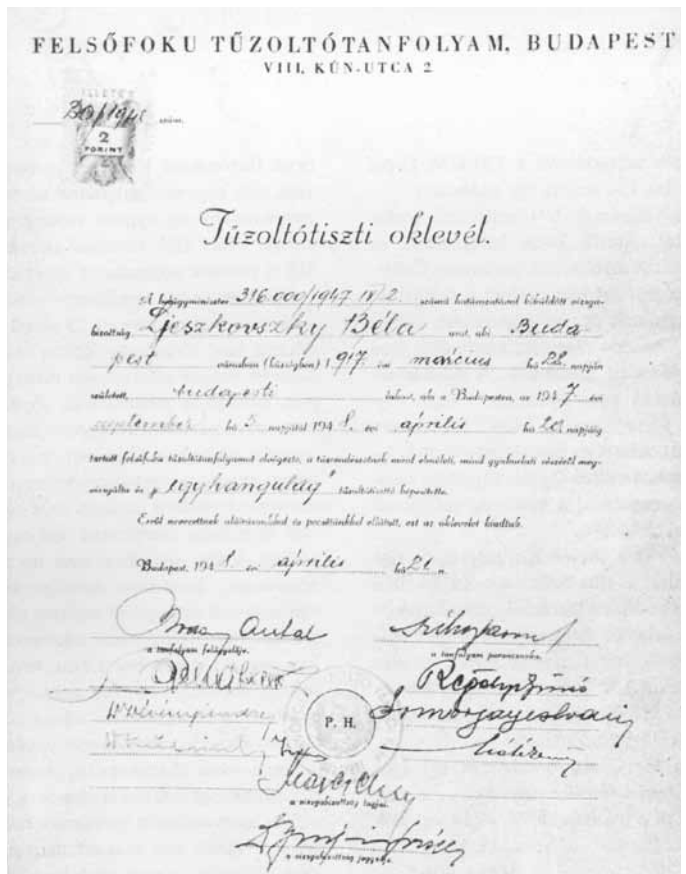 FELSŐFOKU TŰZOLTÓTANFOLYAM, BUDAPEST
VIII, KÚN-UTCA 2
ILLETÉK
szám.
2
FORINT
Tűzoltótiszti oklevél.
A belügyminiszter 316.000/1947 IV/2. számú határozatával kiküldött vizsga-
bizottság Ljeszkovszky Béla urat, aki Buda
pest városban (községben) 1917. évi március hó 28. napján
született, budapesti lakost, aki a Budapesten, az 1947 évi
szeptember hó 5. napjától 1948. évi április hó 20. napjáig
tartott felsőfoku tűzoltótanfolyamot elvégezte, a tűzrendészetnek mind elméleti, mind gyakorlati részéről meg-
vizsgálta és „egyhangulag" tűzoltótisztté képesítette.
Erről nevezettnek aláírásunkkal és pecsétünkkel ellátott, ezt az oklevelet kiadtuk.
Budapest, 1948. évi április hó 21. n.
Antal
a tanfolyam felügyelője.
a tanfolyam parancsnoka.
P. H.
a vizsgabizottság tagjai.
a vizsgabizottság jegyzője.